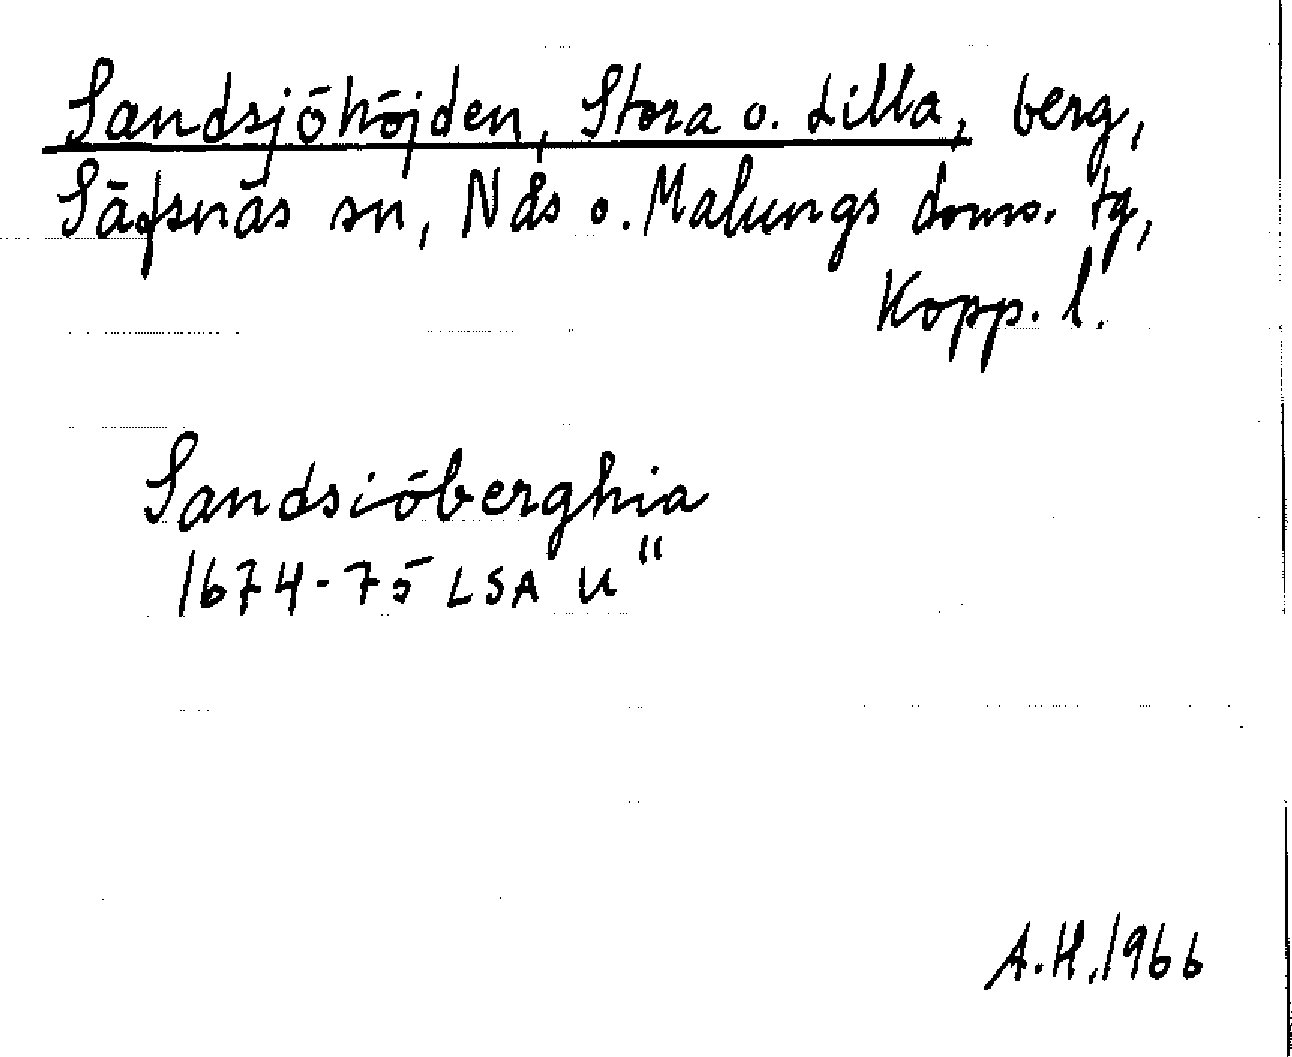 Sandsjöhöjden, Stora o. Lilla, berg,
Säfsnäs sn, Nås o. Malungs doms. tg,
Kopp. l.
Sandsiöberghia
1674-75 LSA U"
A.H. 1966